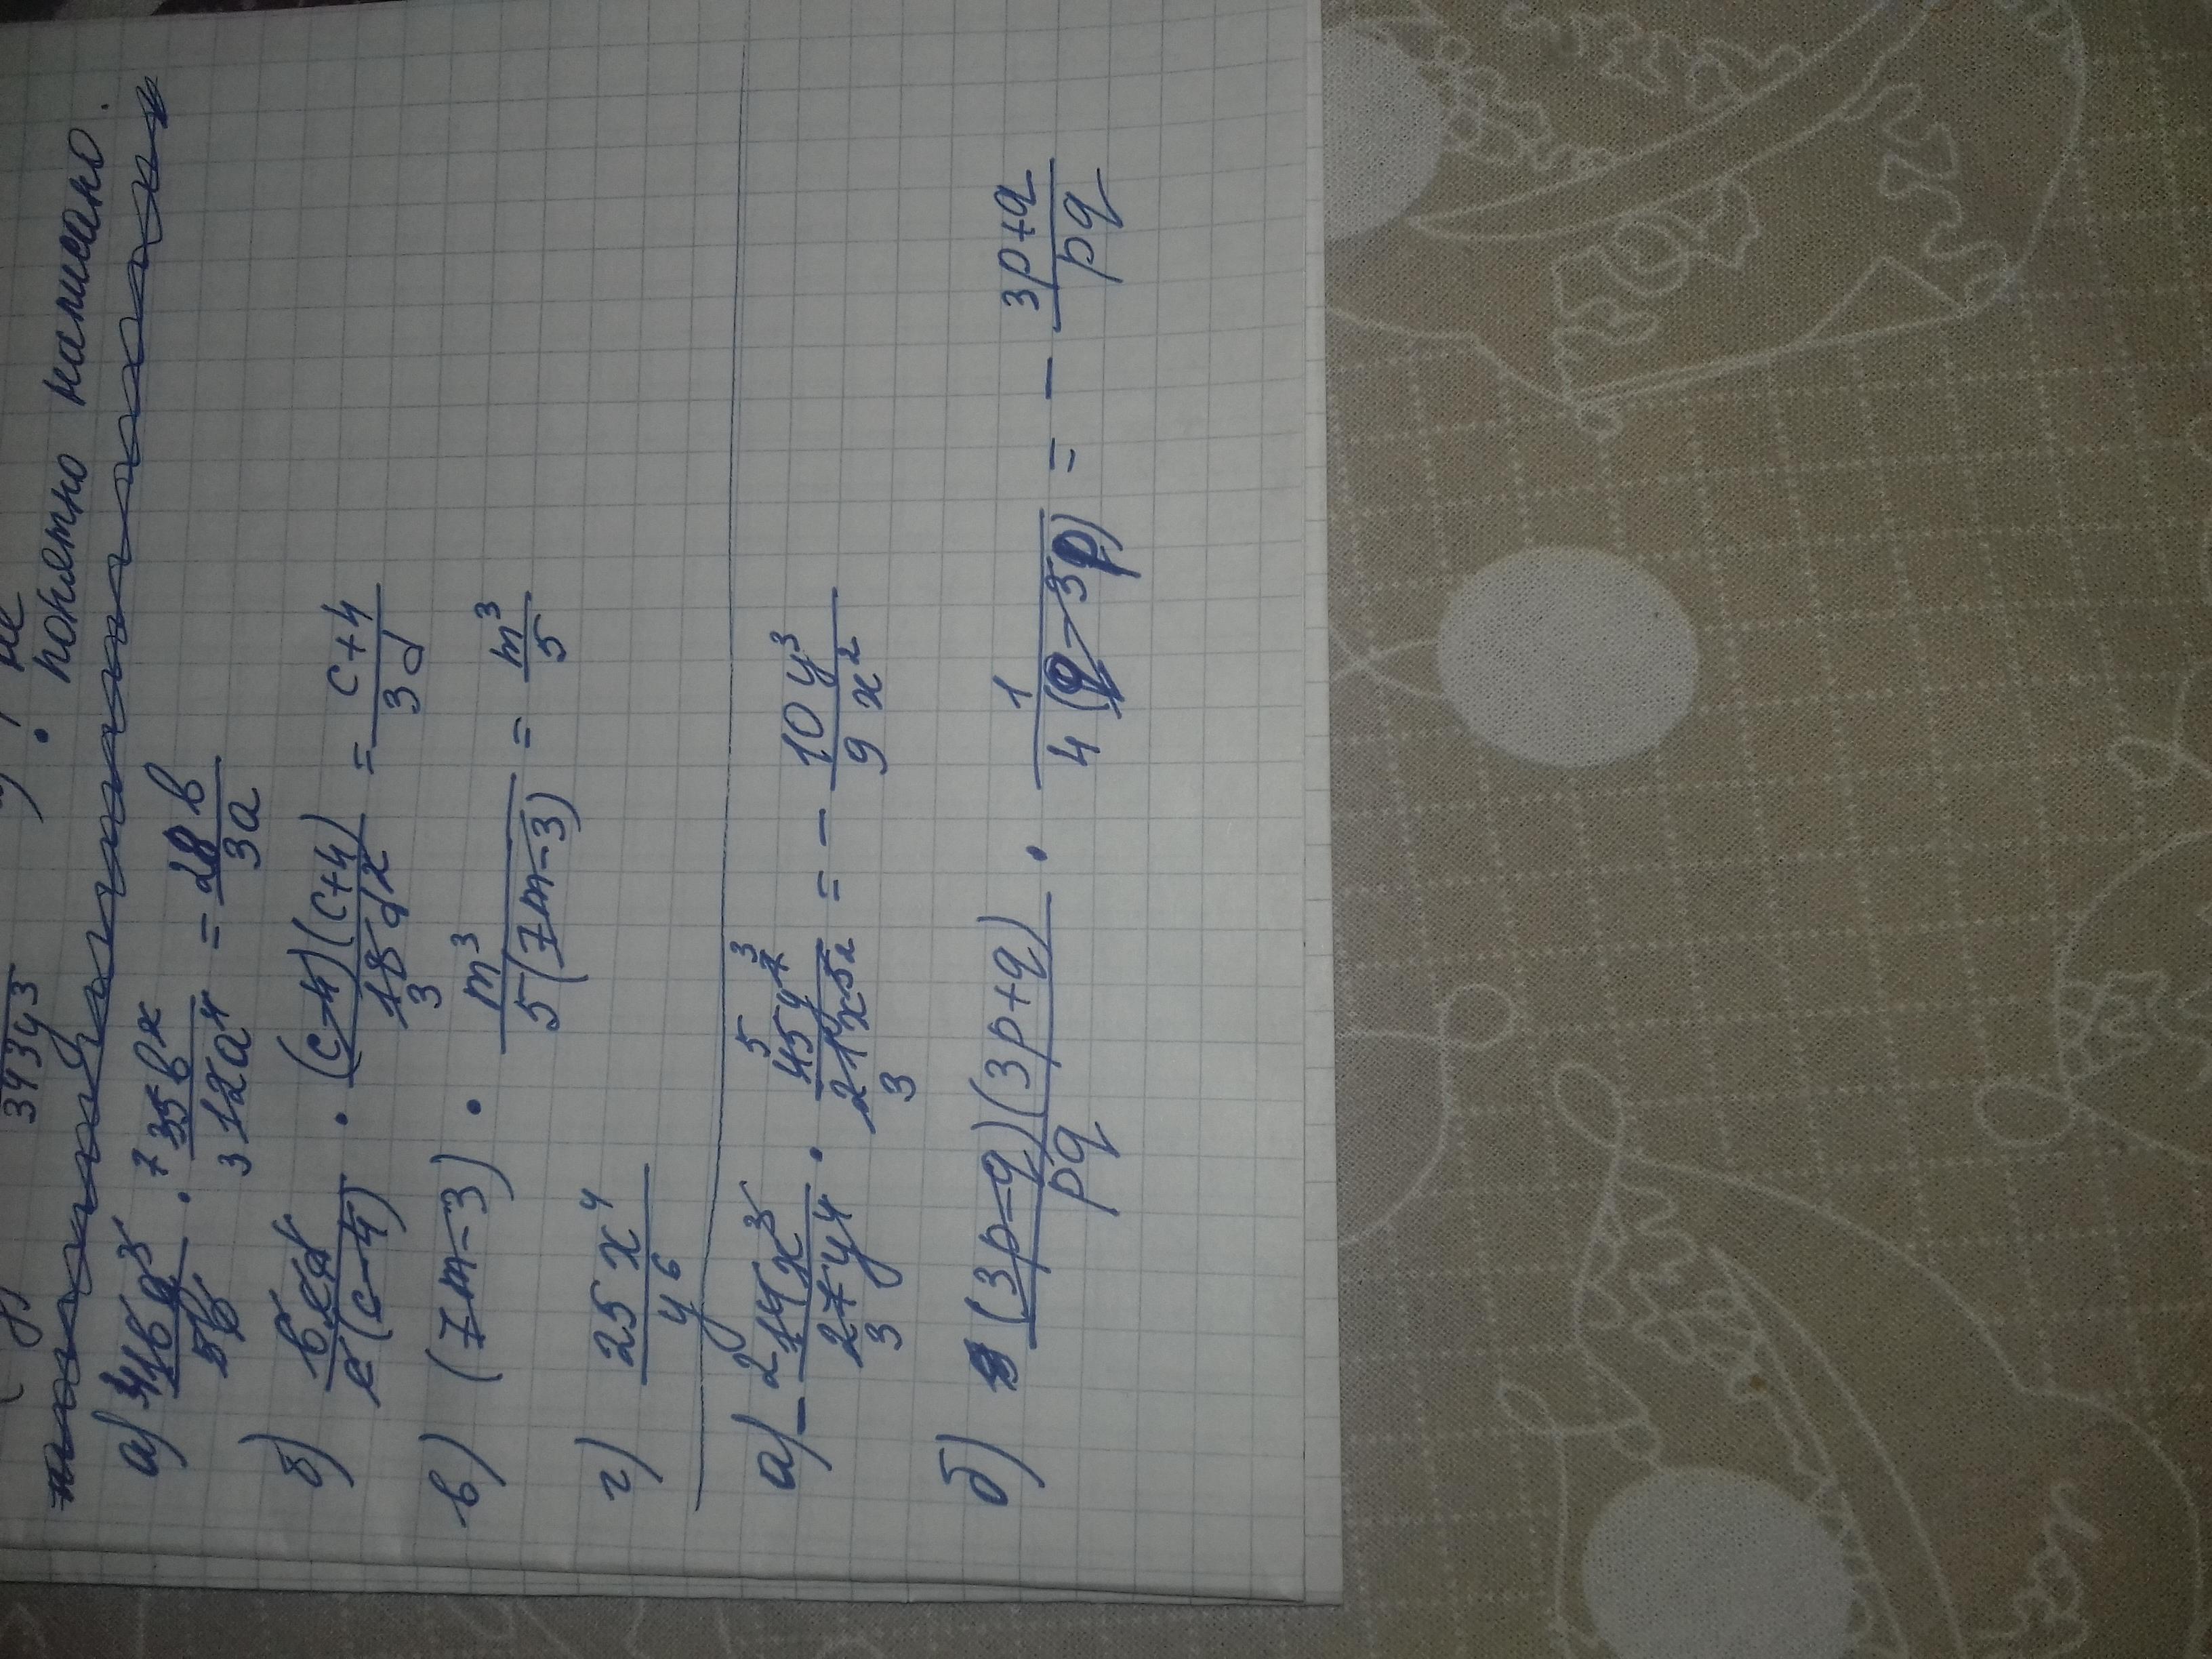 343y³
не
понятно написано.
а) 16a³/5b · 35b²/12a⁴ = 28b/3a
б) 6cd/c(c-4) · (c-4)(c+4)/18d² = c+4/3d
в) (7m-3) · m³/5(7m-3) = m³/5
г) 25x⁴/y⁶
а) - 14x³/27y⁴ · 45y⁷/21x⁵ = - 10y³/9x²
б) (3p-q)(3p+q)/pq · 1/4(q-3p) = - 3p+q/pq